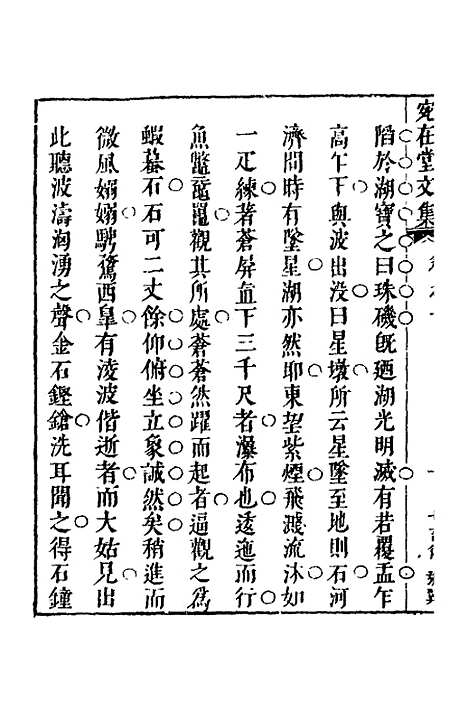 宛在堂文集
陷於湖寶之曰珠磯旣廼湖光明滅有若覆盂乍
高乍下與波出没曰星墩所云星墜至地則石河
濟間時有墜星湖亦然耶東望紫煙飛濺流沐如
一疋練著蒼屏直下三千尺者瀑布也逶迤而行
魚鼈黿鼉觀其所處蒼蒼然躍而起者逼觀之爲
蝦蟇石石可二丈餘仰俯坐立象誠然矣稍進而
微風嫋嫋騁騖西皐有淩波偕逝者而大姑見出
此聽波濤洶湧之聲金石鏗鎗洗耳聞之得石鐘